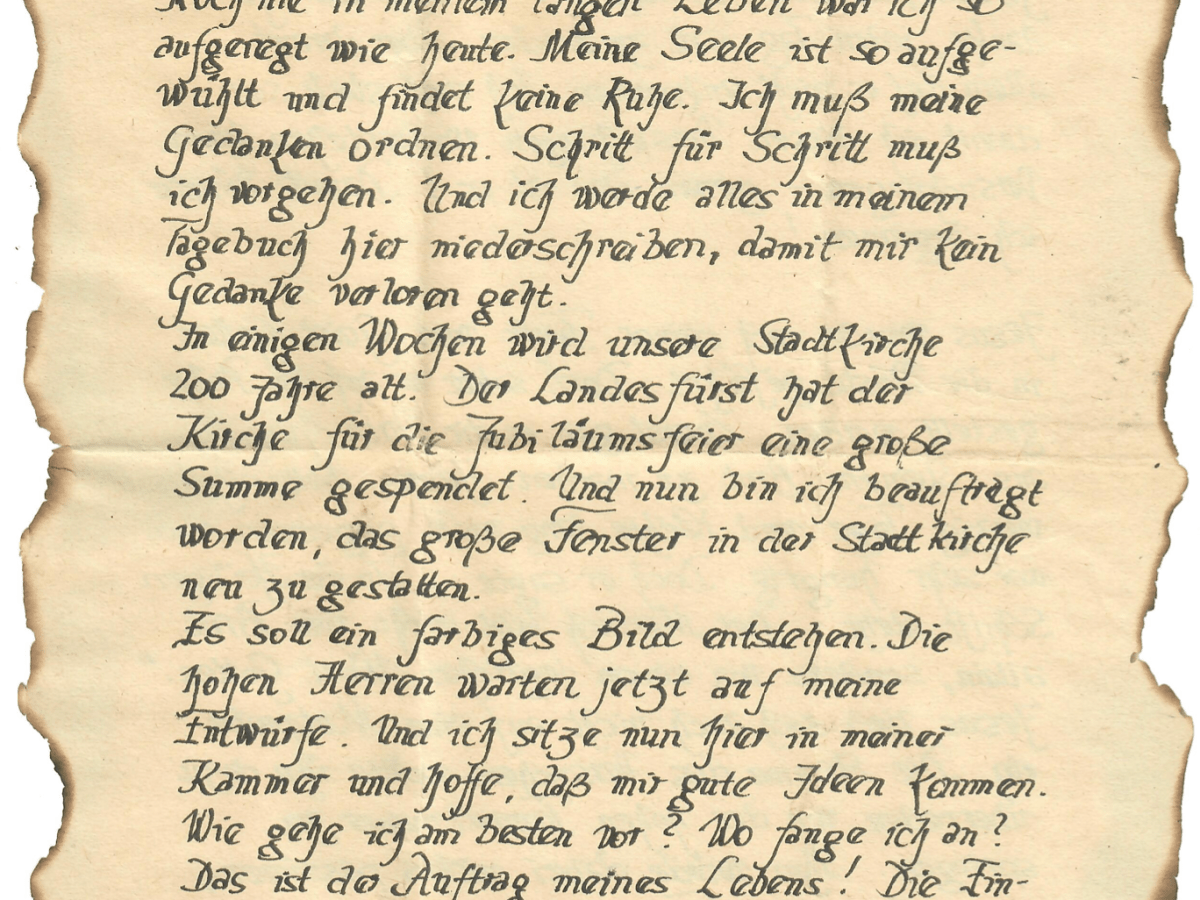 Noch nie in meinem langen Leben war ich so
aufgeregt wie heute. Meine Seele ist so aufge-
wühlt und findet keine Ruhe. Ich muß meine
Gedanken ordnen. Schritt für Schritt muß
ich vorgehen. Und ich werde alles in meinem
Tagebuch hier niederschreiben, damit mir kein
Gedanke verloren geht.
In einigen Wochen wird unsere Stadtkirche
200 Jahre alt. Der Landesfürst hat der
Kirche für die Jubiläumsfeier eine große
Summe gespendet. Und nun bin ich beauftragt
worden, das große Fenster in der Stadtkirche
neu zu gestalten.
Es soll ein farbiges Bild entstehen. Die
hohen Herren warten jetzt auf meine
Entwürfe. Und ich sitze nun hier in meiner
Kammer und hoffe, daß mir gute Ideen kommen.
Wie gehe ich am besten vor? Wo fange ich an?
Das ist der Auftrag meines Lebens! Die Ein-